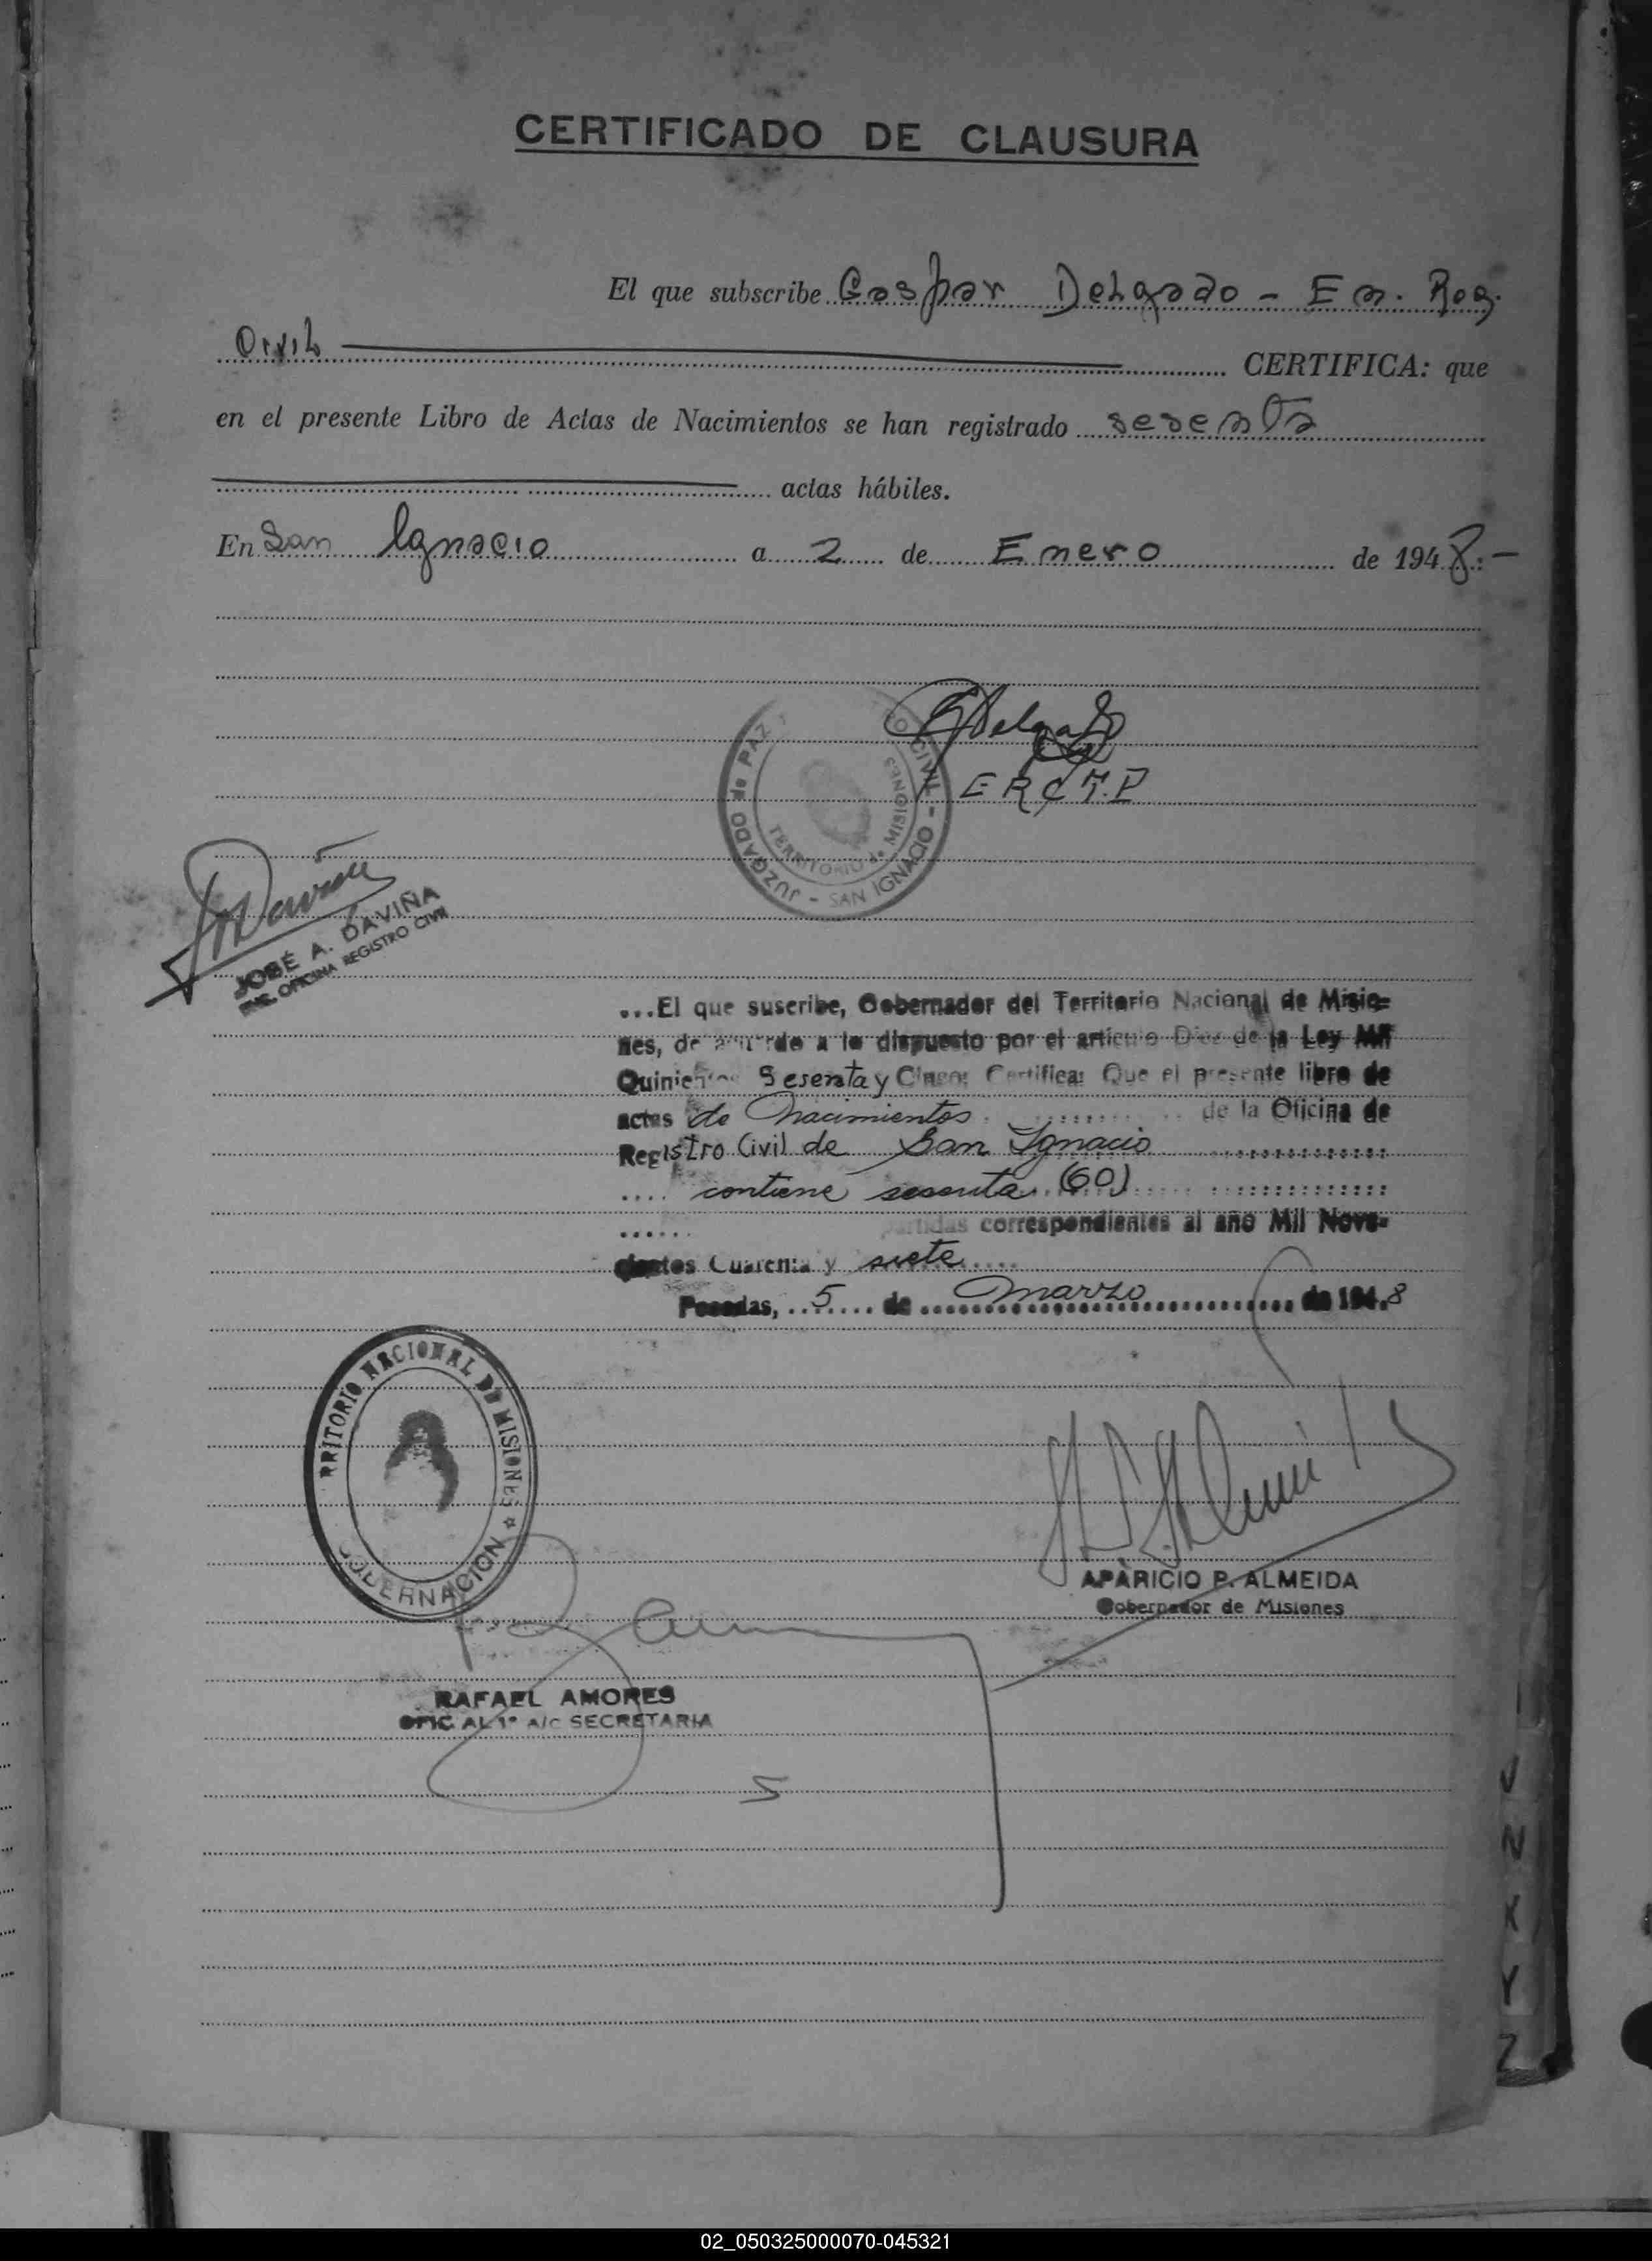 CERTIFICADO DE CLAUSURA
El que subscribe Gaspar Delgado - En. Reg.
Civil CERTIFICA: que
en el presente Libro de Actas de Nacimientos se han registrado sesenta
actas hábiles.
En San Ignacio a 2 de Enero de 1948.-
GDelgado
ERC
JUZGADO de PAZ
O CIVIL - SAN IGNACIO -
TERRITORIO de MISIONES
JDaviña
JOSÉ A. DAVIÑA
ENC. OFICINA REGISTRO CIVIL
...El que suscribe, Gobernador del Territorio Nacional de Misio=
nes, de acuerdo a lo dispuesto por el articulo Diez de la Ley Mil
Quinientos Sesenta y Cinco: Certifica: Que el presente libro de
actas de Nacimientos de la Oficina de
Registro Civil de San Ignacio
contiene sesenta (60)
partidas correspondientes al año Mil Nove=
cientos Cuarenta y siete
Posadas, 5 de marzo de 1948
RRITORIO NACIONAL DE MISIONES
GOBERNACION
APARICIO P. ALMEIDA
Gobernador de Misiones
RAFAEL AMORES
OFICIAL 1° A/C SECRETARIA
V
N
X
Y
Z
02_050325000070-045321